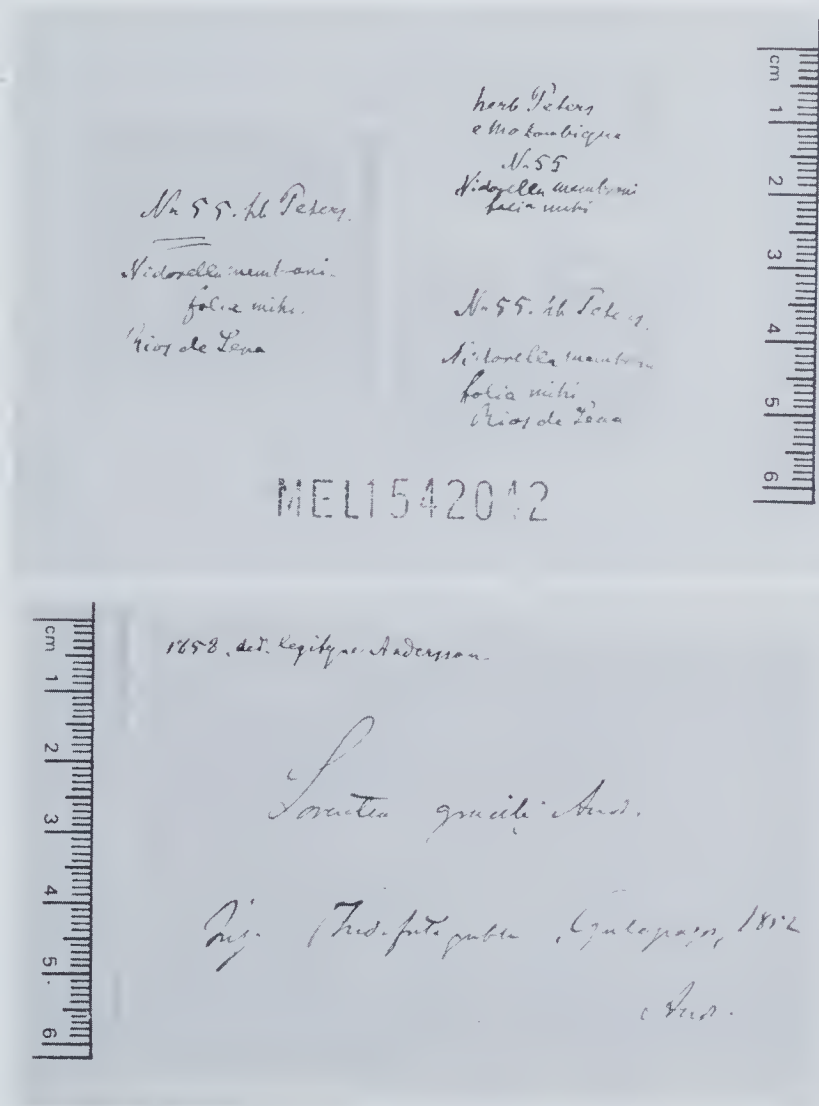 No 55. hb Peters.
Nidorella membrani-
folia mihi.
Rios de Sena
herb Peters
e Mozambique
No 55
Nidorella membrani
folia mihi
No 55. hb Peters.
Nidorella membrani
folia mihi
Rios de Sena
MEL1542012
cm 1 2 3 4 5 6
cm 1 2 3 4 5 6
1858. ded. legitque Andersson.
gracilis And.
Galapagos, 1852
And.